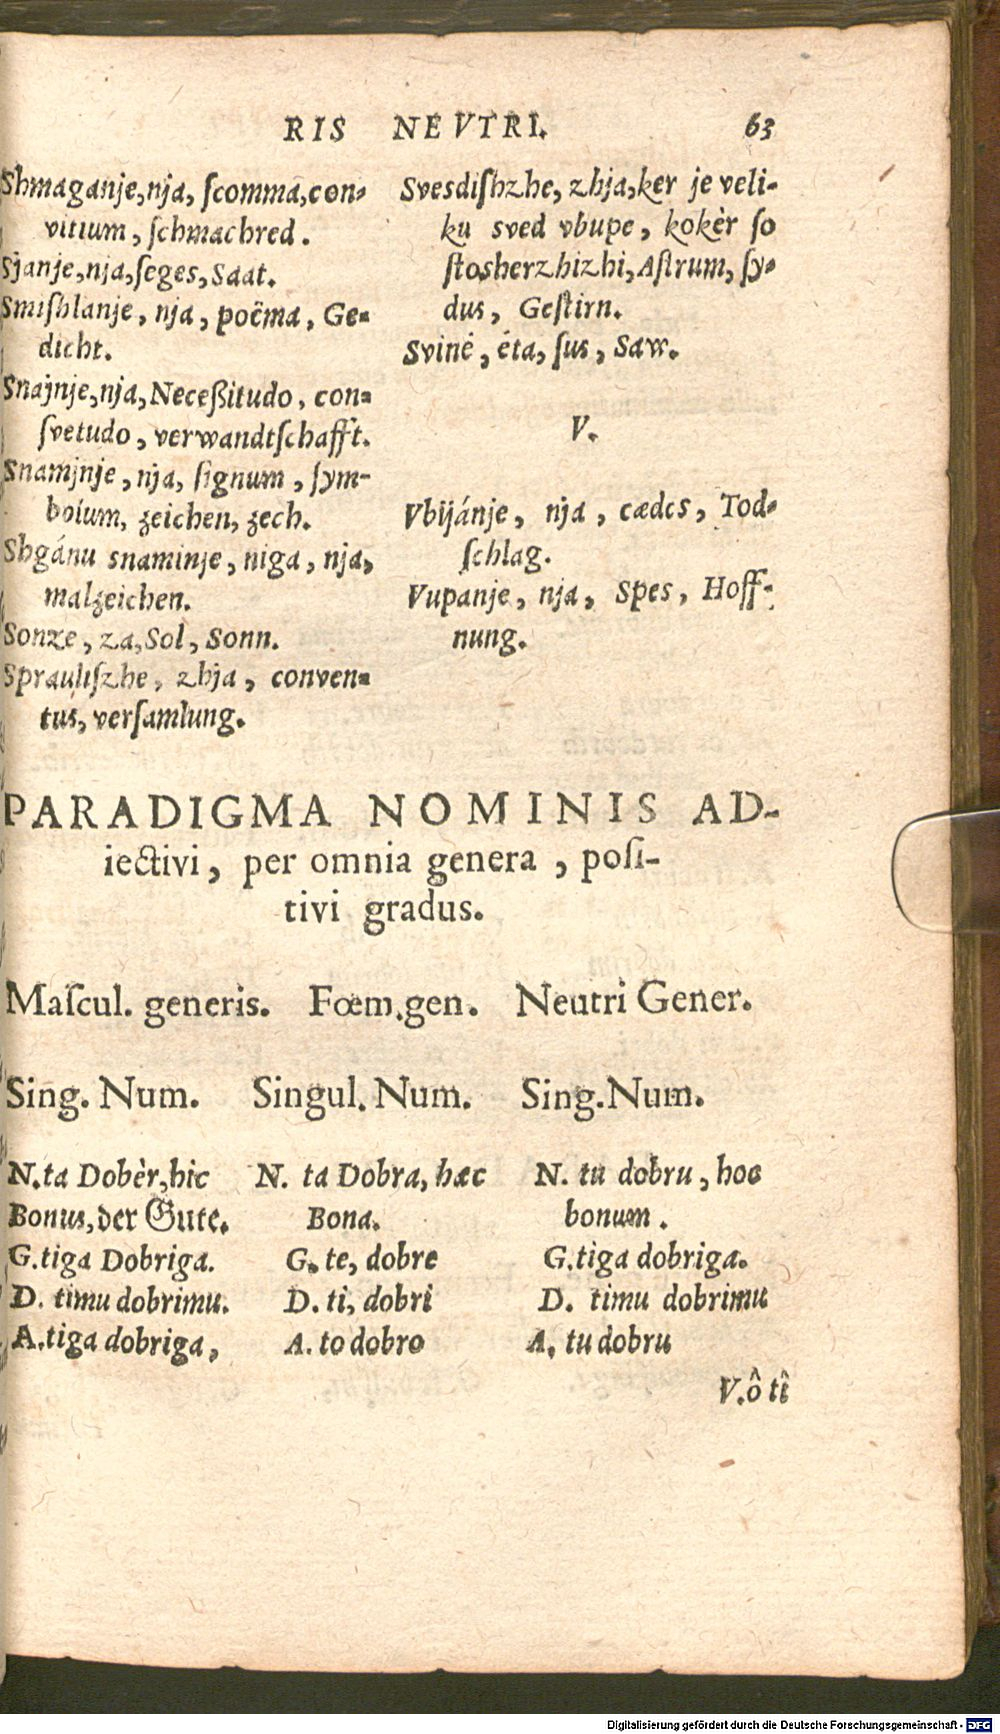 RIS NEVTRI. 63
Shmaganje, nja, ſcomma, con-
vitium, ſchmachred.
Sjanje, nja, ſeges, Saat.
Smiſhlanje, nja, poëma, Ge-
dicht.
Snajnje, nja, Neceßitudo, con-
ſvetudo, verwandtſchafft.
Snaminje, nja, ſignum, ſym-
bolum, zeichen, zech.
Shgánu snaminje, niga, nja,
malzeichen.
Sonze, za, Sol, Sonn.
Spraulſzhe, zhja, conven-
tus, verſamlung.
Svesdiſhzhe, zhja, ker je veli-
ku sved vbupe, kokèr ſo
ſtosherzhizhi, Aſtrum, ſy-
dus, Geſtirn.
Svinè, éta, ſus, Saw.
V.
Vbijánje, nja, cædes, Tod-
ſchlag.
Vupanje, nja, Spes, Hoff-
nung.
PARADIGMA NOMINIS AD-
iectivi, per omnia genera, poſi-
tivi gradus.
Maſcul. generis. Fœm. gen. Neutri Gener.
Sing. Num. Singul. Num. Sing. Num.
N. ta Dobèr, hic N. ta Dobra, hæc N. tu dobru, hoc
Bonus, der Gute. Bona. bonum.
G. tiga Dobriga. G. te, dobre G. tiga dobriga.
D. timu dobrimu. D. ti, dobri D. timu dobrimu
A. tiga dobriga, A. to dobro A. tu dobru
V. ô tî
Digitalisierung gefördert durch die Deutsche Forschungsgemeinschaft - DFG